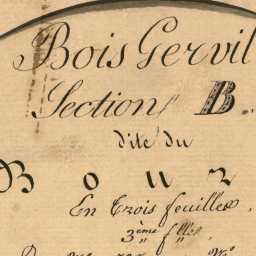 Bois Gervil
Section B.
dite du
B o u r
En Trois feuilles.
3ème flle